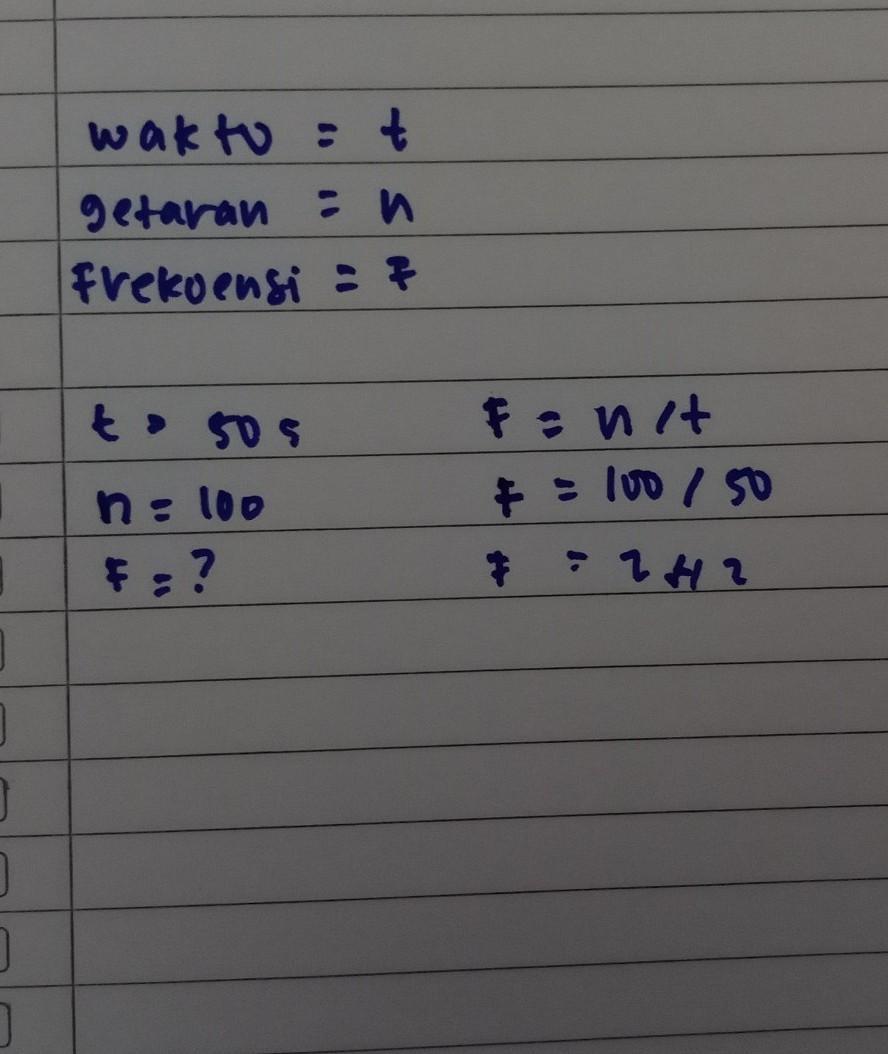 waktu = t
getaran = n
Frekuensi = F
t = 50 s
n = 100
F = ?
F = n / t
F = 100 / 50
F = 2 Hz